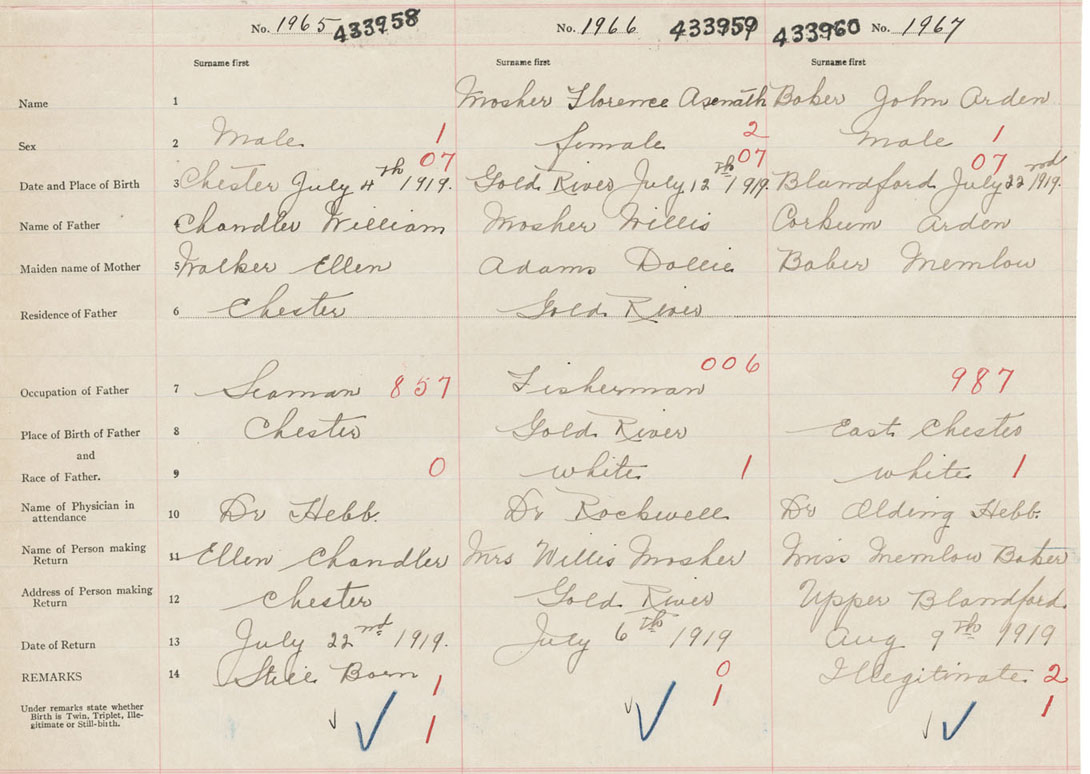 No. 1965 433958 No. 1966 433959 433960 No. 1967
Surname first Surname first Surname first
Name 1 Mosher Florence Asenath Baker John Arden
Sex 2 Male 1 female 2 male 1
07 07 07
Date and Place of Birth 3 Chester July 4th 1919. Gold River July 12th 1919. Blandford July 22nd 1919.
Name of Father 4 Chandler William Mosher Willis Corkum Arden
Maiden name of Mother 5 Walker Ellen Adams Dollie Baker Memlow
Residence of Father 6 Chester Gold River
Occupation of Father 7 Seaman 857 Fisherman 006 987
Place of Birth of Father 8 Chester Gold River East Chester
and
Race of Father. 9 0 white 1 white 1
Name of Physician in
attendance 10 Dr Hebb. Dr Rockwell Dr Olding Hebb.
Name of Person making
Return 11 Ellen Chandler Mrs Willis Mosher Miss Memlow Baker
Address of Person making
Return 12 Chester Gold River Upper Blandford
Date of Return 13 July 22nd 1919. July 6th 1919 Aug 9th 1919
REMARKS 14 Still Born 1 0 Illegitimate 2
Under remarks state whether
Birth is Twin, Triplet, Ille-
gitimate or Still-birth. 1 1 1